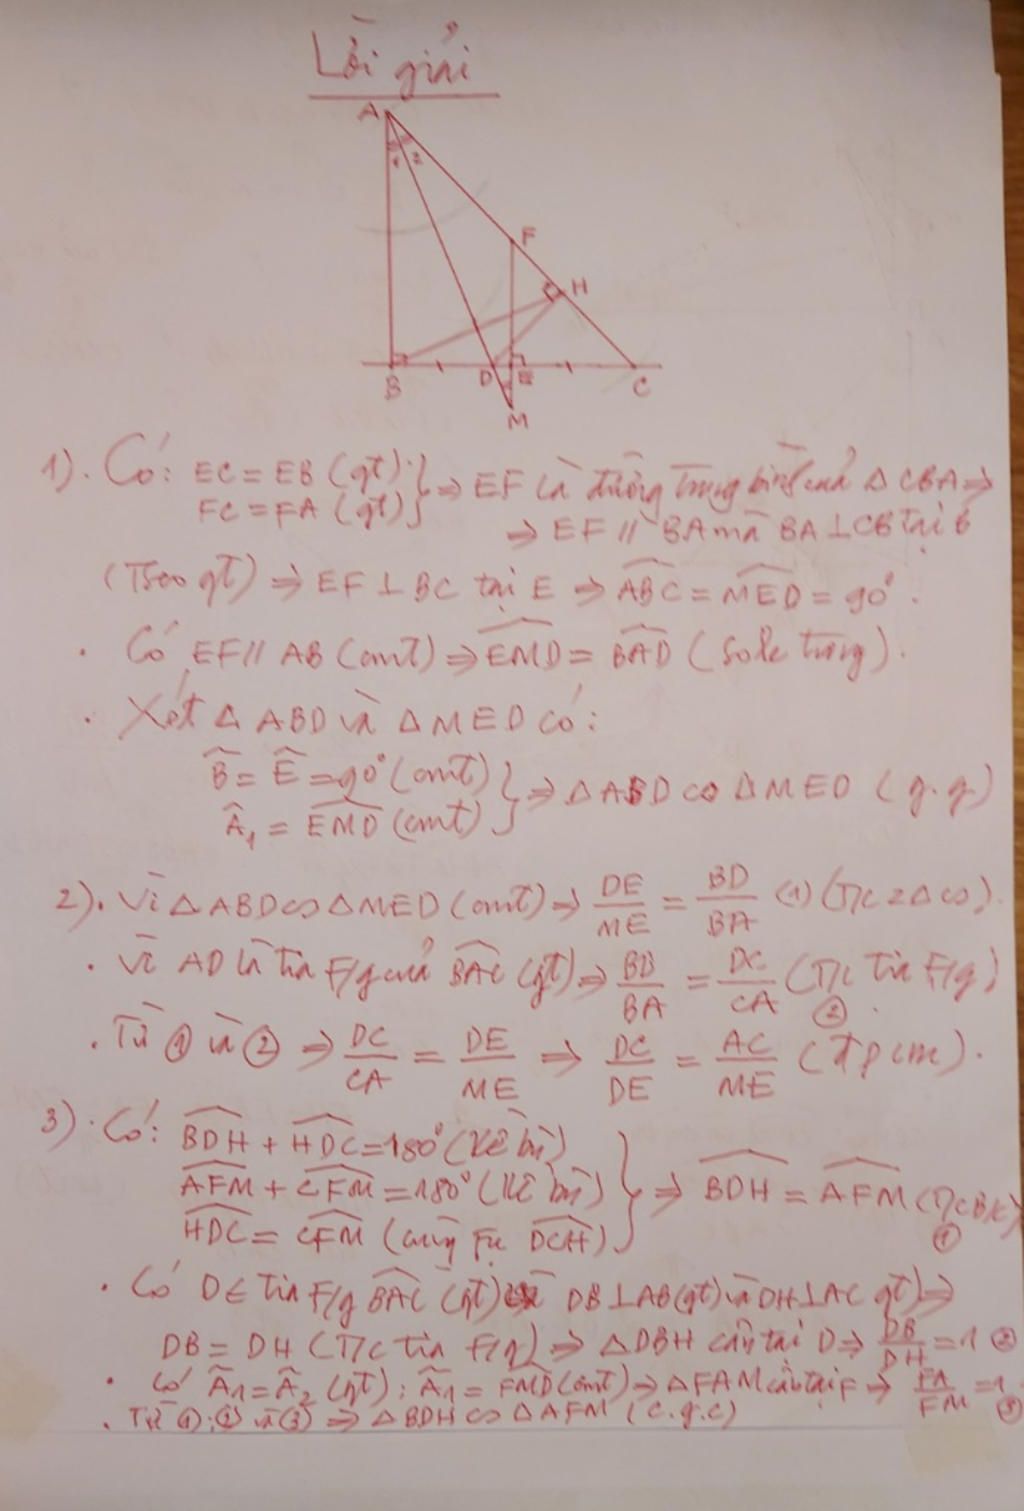 Lời giải
A
1 2
F
H
B D E C
M
1). Có: EC = EB (gt).
FC = FA (gt) } ⇒ EF là đường trung bình của △ CBA ⇒
⇒ EF // BA mà BA ⊥ CB tại B
(Theo gt) ⇒ EF ⊥ BC tại E ⇒ \widehat{ABC} = \widehat{MED} = 90°.
· Có EF // AB (cmt) ⇒ \widehat{EMD} = \widehat{BAD} (Sole trong).
· Xét △ ABD và △ MED có:
\widehat{B} = \widehat{E} = 90° (cmt)
\widehat{A}_1 = \widehat{EMD} (cmt) } ⇒ △ ABD ∽ △ MED (g.g)
2). Vì △ ABD ∽ △ MED (cmt) ⇒ DE/ME = BD/BA (1) (T/c 2△ ∽).
· Vì AD là tia F/g của \widehat{BAC} (gt) ⇒ BD/BA = DC/CA (T/c tia F/g) ②.
· Từ ① và ② ⇒ DC/CA = DE/ME ⇒ DC/DE = AC/ME (đpcm).
3). Có: \widehat{BDH} + \widehat{HDC} = 180° (Kề bù)
\widehat{AFM} + \widehat{CFM} = 180° (Kề bù)
\widehat{HDC} = \widehat{CFM} (cùng Fụ \widehat{DCH}) } ⇒ \widehat{BDH} = \widehat{AFM} (T/c B/c) ①
· Có D ∈ tia F/g \widehat{BAC} (gt) DB ⊥ AB (gt) và DH ⊥ AC gt) ⇒
DB = DH (T/c tia F/g) ⇒ △ DBH cân tại D ⇒ DB/DH = 1 ②
· Có \widehat{A}_1 = \widehat{A}_2 (gt); \widehat{A}_1 = \widehat{FMD} (cmt) ⇒ △ FAM cân tại F ⇒ FA/FM = 1 ③
· Từ ①; ② và ③ ⇒ △ BDH ∽ △ AFM (c.g.c)